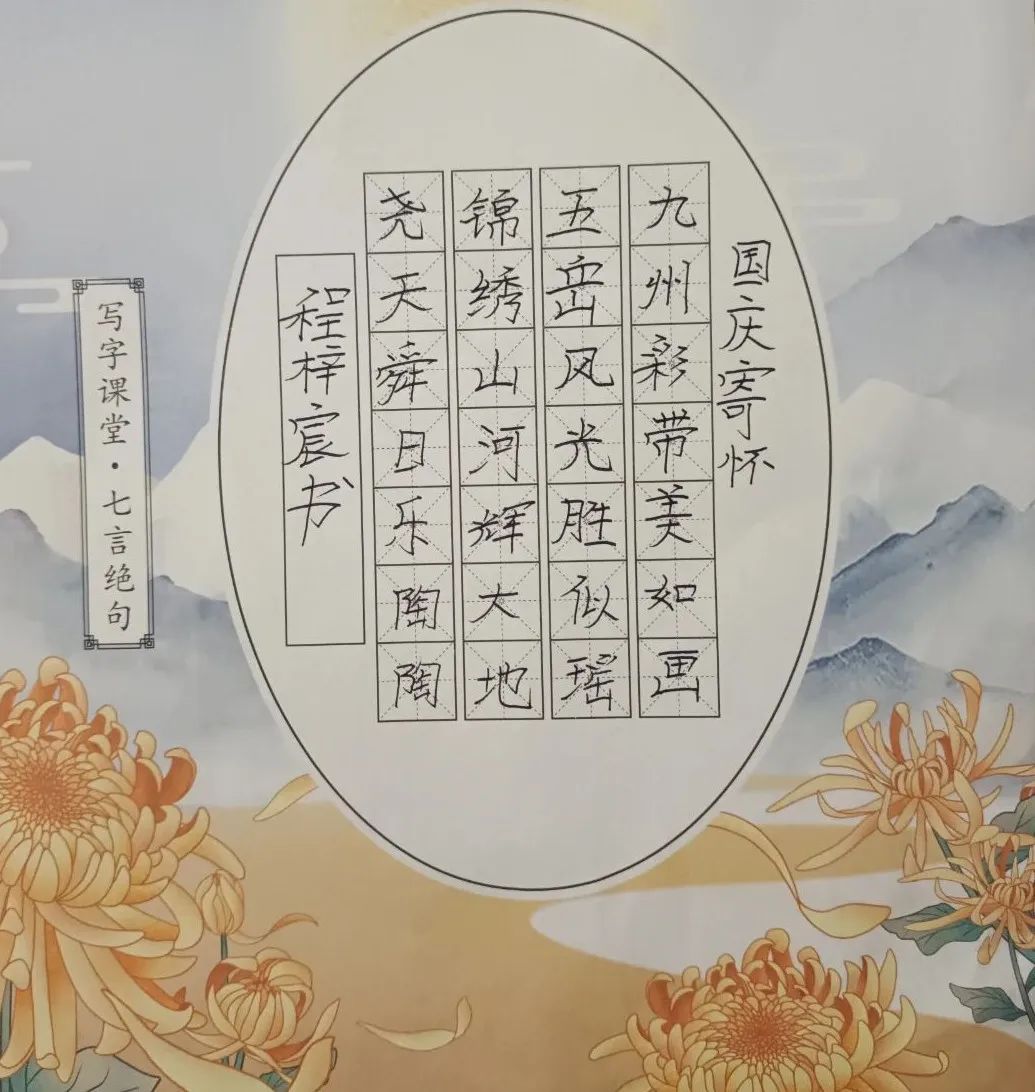 国庆寄怀
九州彩带美如画
五岳风光胜似瑶
锦绣山河辉大地
尧天舜日乐陶陶
程梓宸书
写字课堂·七言绝句